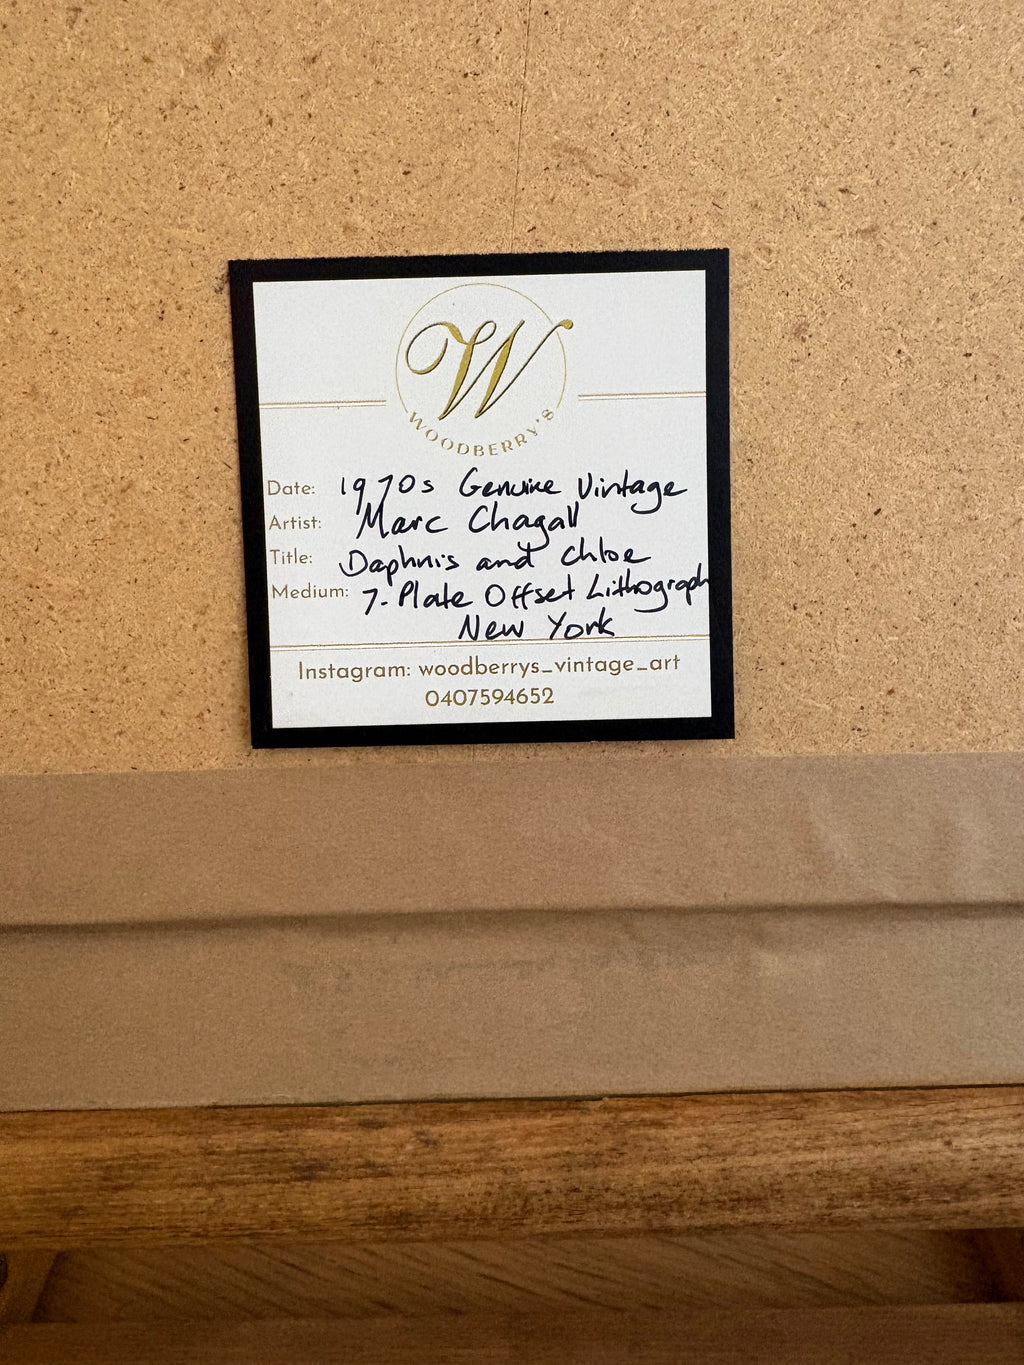 W
WOODBERRY'S
Date: 1970s Genuine Vintage
Artist: Marc Chagall
Title: Daphnis and Chloe
Medium: 7-Plate Offset Lithograph
New York
Instagram: woodberrys_vintage_art
0407594652